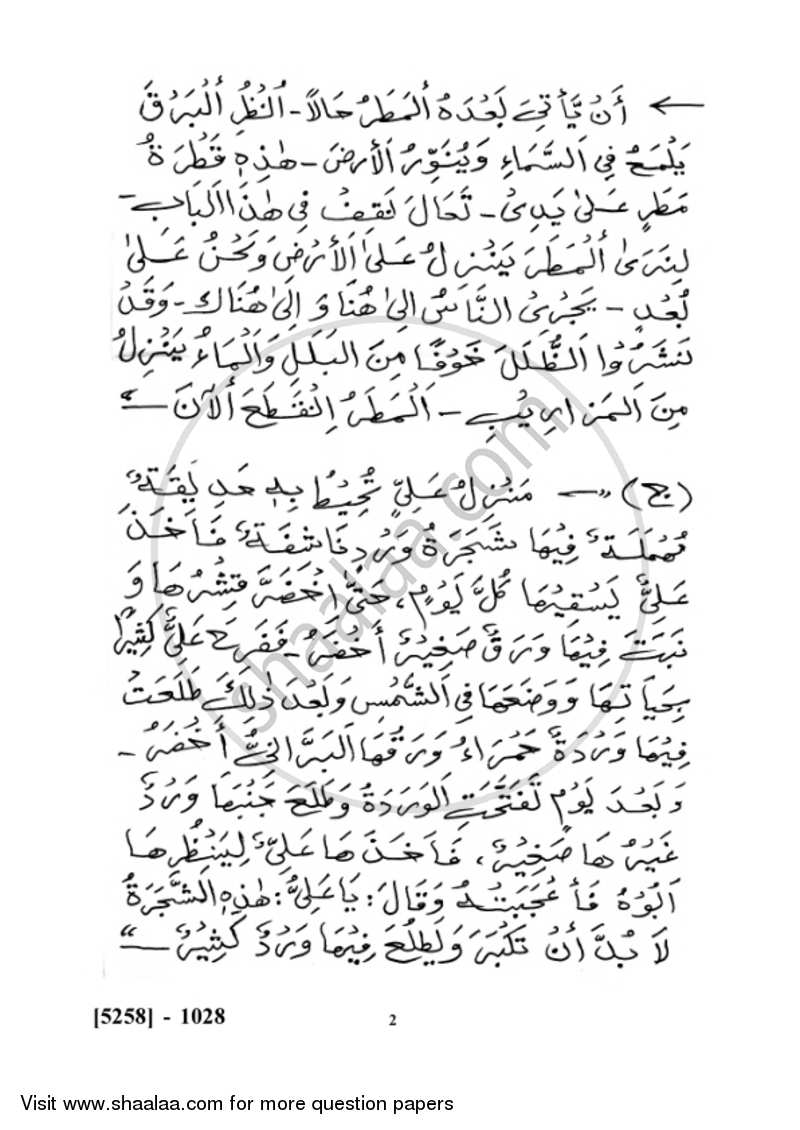 أَنْ يَّأْتِيَ بَعْدَهُ الْمَطَرُ حَالًا - اُنْظُرِ الْبَرْقَ
يَلْمَعُ فِي السَّمَاءِ وَيُنَوِّرُ الْأَرْضَ - هٰذِهٖ قَطْرَةُ
مَطَرٍ عَلىٰ يَدِيْ - تَعَالَ نَقِفْ فِي هٰذَا الْبَابِ -
لِنَرَىٰ الْمَطَرَ يَنْزِلُ عَلىٰ الْأَرْضِ وَنَحْنُ عَلىٰ
بُعْدٍ - يَجْرِيْ النَّاسُ اِلىٰ هُنَا وَ اِلىٰ هُنَاكَ - وَقَدْ
نَشَرُوْا الظُّلَلَ خَوْفًا مِنَ الْبَلَلِ وَالْمَاءُ يَنْزِلُ
مِنَ الْمَزَارِيْبِ - اَلْمَطَرُ اِنْقَطَعَ الْآنَ -
(ج) "— مَنْزِلُ عَلِيٍّ تُحِيْطُ بِهٖ حَدِيْقَةٌ
مُهْمَلَةٌ فِيْهَا شَجَرَةُ وَرْدٍ نَاشِفَةٌ فَأَخَذَ
عَلِيٌّ يَسْقِيْهَا كُلَّ يَوْمٍ، حَتّٰى اِخْضَرَّ قِشْرُهَا وَ
نَبَتَ فِيْهَا وَرَقٌ صَغِيْرٌ أَخْضَرُ - فَفَرِحَ عَلِيٌّ كَثِيْرًا
بِحَيَاتِهَا وَوَضَعَهَا فِي الشَّمْسِ وَبَعْدَ ذٰلِكَ طَلَعَتْ
فِيْهَا وَرْدَةٌ حَمْرَاءُ وَرَقُهَا الْبَرَّانِيُّ أَخْضَرُ -
وَبَعْدَ يَوْمٍ تَفَتَّحَتِ الْوَرْدَةُ وَطَلَعَ جَنْبَهَا وَرْدٌ
غَيْرُهَا صَغِيْرٌ، فَأَخَذَهَا عَلِيٌّ لِيَنْظُرَهَا
اَبُوْهُ فَأَعْجَبَتْهُ وَقَالَ: يَا عَلِيُّ: هٰذِهِ الشَّجَرَةُ
لَا بُدَّ أَنْ تَكْبَرَ وَيَطْلُعَ فِيْهَا وَرْدٌ كَثِيْرٌ —"
[5258] - 1028
2
Visit www.shaalaa.com for more question papers
shaalaa.com